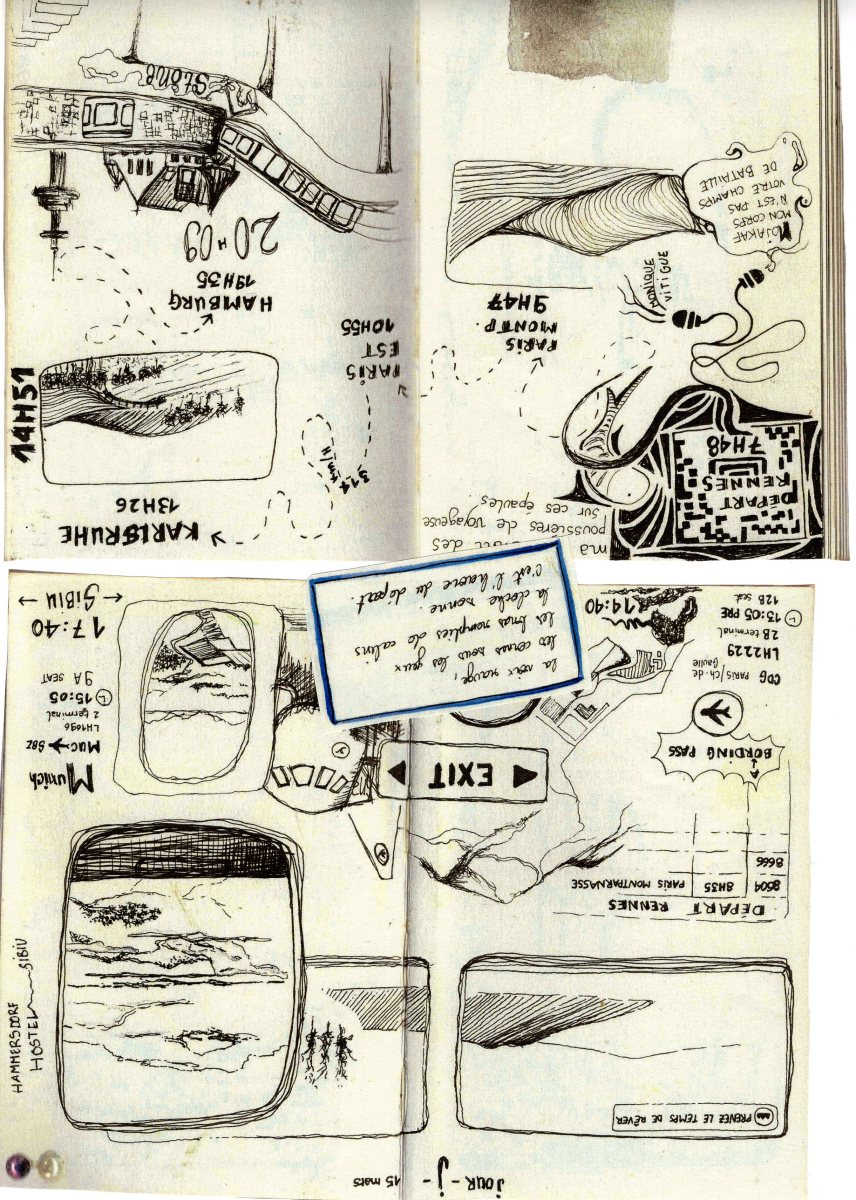 JOUR - J - 15 mars
PRENEZ LE TEMPS DE RÊVER
DÉPART RENNES
8604 8H35 PARIS MONTPARNASSE
8666
BORDING PASS
A
CDG PARIS/Ch-de
Gaulle
LH2229
2B terminal
15:05 PRE
12B seat
14:40
EXIT
la voix rauque,
les cernes sous les yeux
les bras remplies de calins
la cloche sonne.
c'est l'heure du départ.
HAMMERSDORF
HOSTEL SIBIU
Munich
MUC → SBZ
LH1696
2 terminal
15:05
9A SEAT
17:40
← SiBiU →
DEPART
RENNES
7H48
ma des
poussières de voyageuse
sur ces épaules.
PARIS
MONTP.
9H47
MONIQUE
VITIGUE
MOJAKAF
MON CORPS
N'EST PAS
VOTRE CHAMPS
DE BATAILLE
PARIS
EST
10H55
317
KARLSRUHE
13H26
14H51
HAMBURG
19H35
20H09
Stone